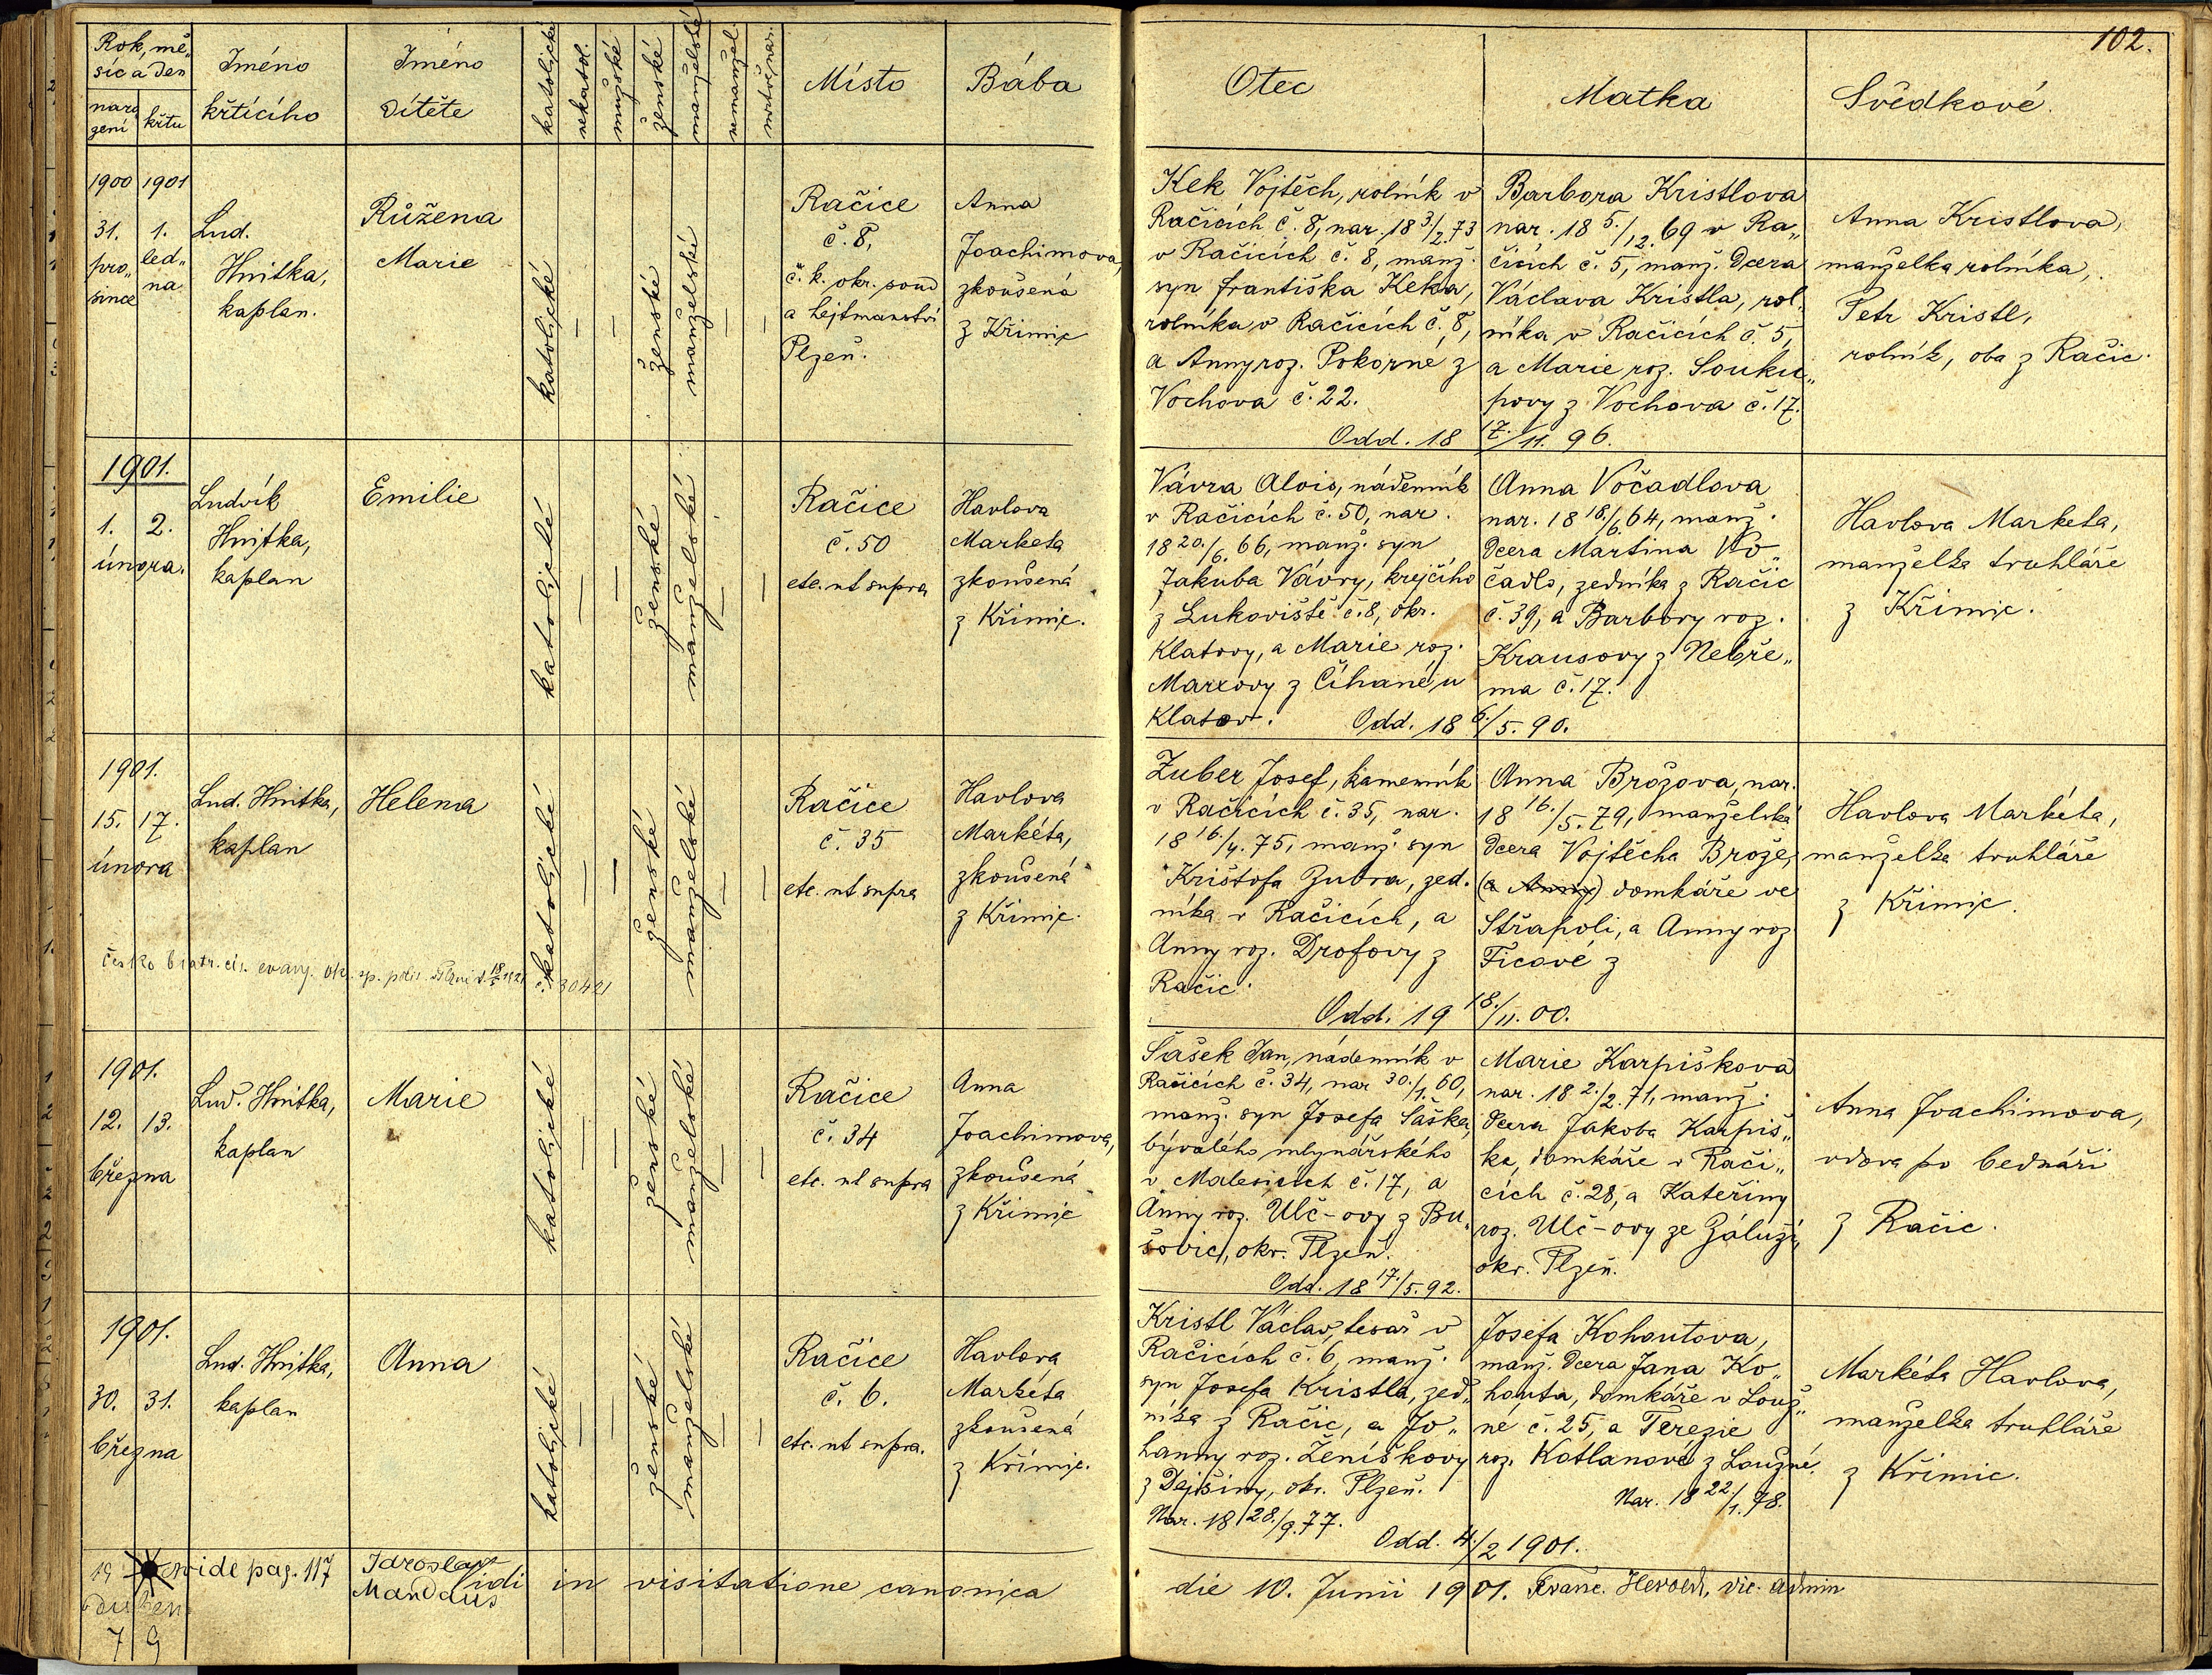 102.
Rok, mě„
síc a den
naro
zení
křtu
Jméno
křtícího
Jméno
dítěte
katolické
nekatol.
mužské
ženské
manželské
nemanžel.
mrtvě nar.
Místo
Bába
Otec
Matka
Svědkové.
1900 1901
31. 1.
pro„ led„
since na
Lud.
Hnitka,
kaplan.
Růžena
Marie
katolické
—
—
ženské
manželské
—
—
Račice
č. 8,
c. k. okr. soud
a hejtmanství
Plzeň.
Anna
Joachimova,
zkoušená
z Křimic
Kek Vojtěch, rolník v
Račicích č. 8, nar. 18 3./2. 73
v Račicích č. 8, manž.
syn Františka Keka,
rolníka v Račicích č. 8,
a Anny roz. Pokorné z
Vochova č. 22.
Barbora Kristlova
nar. 18 5./12. 69 v Ra„
čicích č. 5, manž. dcera
Václava Kristla, rol„
níka v Račicích č. 5,
a Marie roz. Souku„
povy z Vochova č. 17.
Odd. 18 17./11. 96.
Anna Kristlova,
manželka rolníka,
Petr Kristl,
rolník, oba z Račic.
1901.
1. 2.
února.
Ludvík
Hnitka,
kaplan
Emilie
katolické
—
—
ženské
manželské
—
—
Račice
č. 50
etc. ut supra
Havlova
Marketa
zkoušená
z Křimic.
Vávra Alois, nádenník
v Račicích č. 50, nar.
18 20./6. 66, manž. syn
Jakuba Vávry, krejčího
z Lukoviště č. 8, okr.
Klatovy, a Marie roz.
Marxovy z Číhané u
Klatov.
Anna Vočadlova
nar. 18 18./6. 64, manž.
dcera Martina Vo„
čadlo, zedníka z Račic
č. 39, a Barbory roz.
Krausovy z Nebře„
ma č. 17.
Odd. 18 6./5. 90.
Havlova Marketa,
manželka truhláře
z Křimic.
1901.
15. 17.
února
Lud. Hnitka,
kaplan
Helena
katolické
—
—
ženské
manželské
—
—
Račice
č. 35
etc. ut supra
Havlova
Markéta,
zkoušená
z Křimic.
česko bratr. cír. evang. ok. sp. polit. Plzni d. 18/5 1921 č. 30421
Zuber Josef, kameník
v Račicích č. 35, nar.
18 16./4. 75, manž. syn
Krištofa Zubra, zed„
níka v Račicích, a
Anny roz. Drofovy z
Račic.
Anna Brožova, nar.
18 16./5. 79, manželská
dcera Vojtěcha Brože,
(a Anny) domkáře ve
Střapoli, a Anny roz
Ficové z
Odd. 19 18./11. 00.
Havlova Markéta,
manželka truhláře
z Křimic.
1901.
12. 13.
března
Lud. Hnitka,
kaplan
Marie
katolické
—
—
ženské
manželské
—
—
Račice
č. 34
etc. ut supra
Anna
Joachimova,
zkoušená
z Křimic
Šašek Jan, nádenník v
Račicích č. 34, nar 30./1. 60,
manž. syn Josefa Šaška,
bývalého mlynářského
v Malesicích č. 17, a
Anny roz. Ulč-ovy z Bu„
šovic, okr. Plzeň.
Odd. 18 17./5. 92.
Marie Karpiškova
nar. 18 2./2. 71, manž.
dcera Jakoba Karpiš„
ka, domkáře v Rači„
cích č. 28, a Kateřiny
roz. Ulč-ovy ze Záluží,
okr. Plzeň.
Anna Joachimova,
vdova po bednáři
z Račic.
1901.
30. 31.
března
Lud. Hnitka,
kaplan
Anna
katolické
—
—
ženské
manželské
—
—
Račice
č. 6.
etc. ut supra.
Havlova
Markéta
zkoušená
z Křimic.
Kristl Václav, tesař v
Račicích č. 6, manž.
syn Josefa Kristla, zed„
níka z Račic, a Jo„
hanny roz. Ženíškovy
z Dejšiny, okr. Plzeň.
Nar. 18 28./9. 77.
Josefa Kohoutova,
manž. dcera Jana Ko„
houta, domkáře v Louž„
né č. 25, a Terezie
roz. Kotlanové z Loužné.
Nar. 18 22./1. 78.
Odd. 4./2 1901.
Markéta Havlova,
manželka truhláře
z Křimic.
19 vide pag. 117
7 9
Jaroslav
Mandaus
Vidi in visitatione canonica die 10. Junii 1901. Franc. Herold, vic. admin